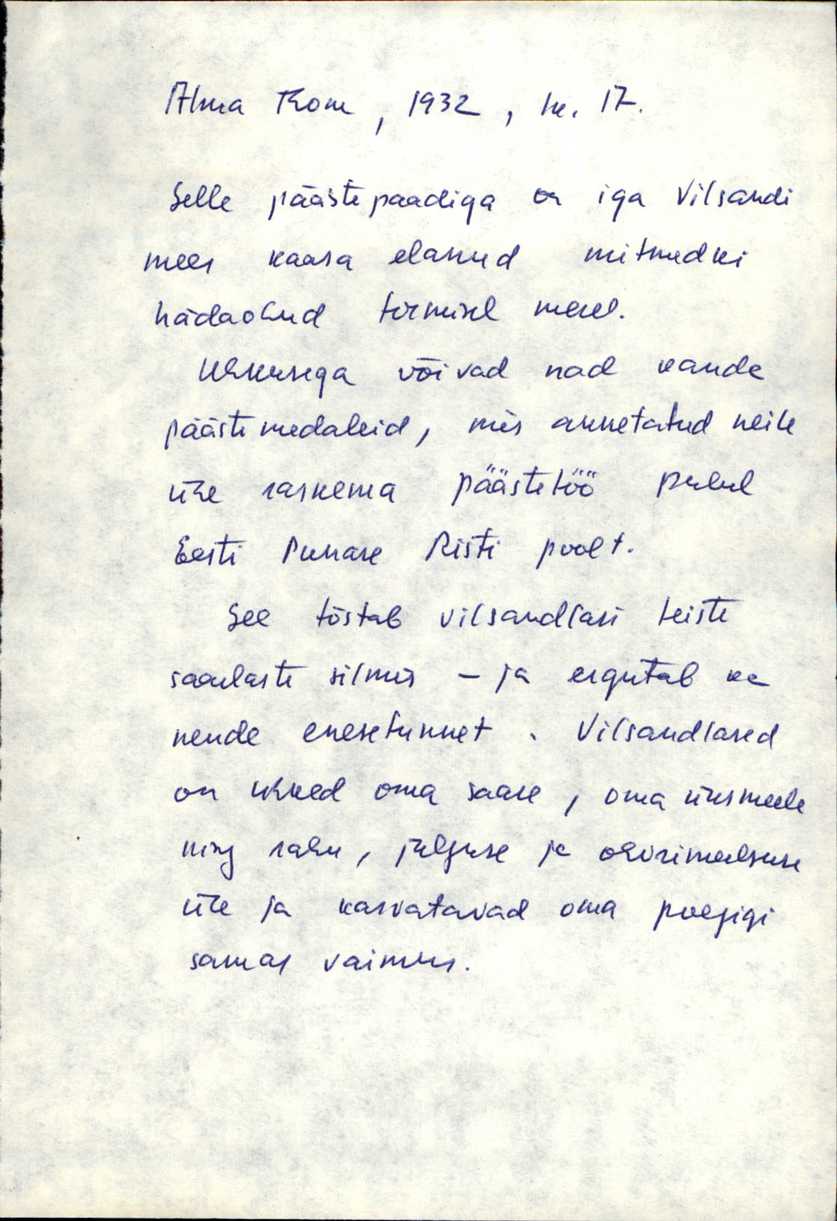 Alma Thom, 1932, lk. 17.
Selle päästepaadiga on iga Vilsandi
mees kaasa elanud mitmedki
hädaohud tormisel merel.
Uhkusega võivad nad kanda
päästemedaleid, mis annetatud neile
ühe raskema päästetöö puhul
Eesti Punase Risti poolt.
See tõstab vilsandlasi teiste
saarlaste silmis – ja ergutab ka
nende enesetunnet. Vilsandlased
on uhked oma saare, oma üksmeele
ning rahu, julguse ja ohvrimeelsuse
üle ja kasvatavad oma poegigi
samas vaimus.